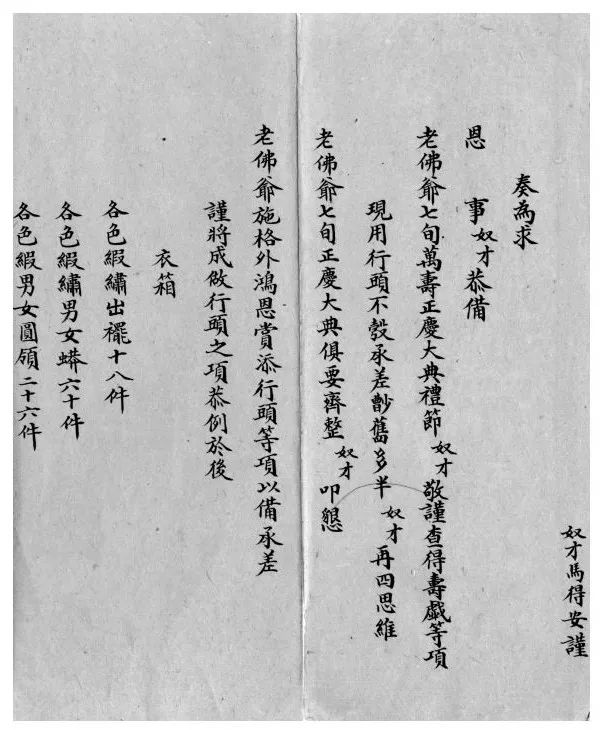 奴才馬得安謹
奏為求
恩　事奴才恭備
老佛爺七旬萬壽正慶大典禮節奴才敬謹查得壽戯等項
現用行頭不彀承差㿝舊多半奴才再四思維
老佛爺七旬正慶大典俱要齊整奴才叩懇
老佛爺施格外鴻恩賞添行頭等項以備承差
謹將成做行頭之項恭例於後
衣箱
各色緞繡出襬十八件
各色緞繡男女蟒六十件
各色緞男女圓領二十六件